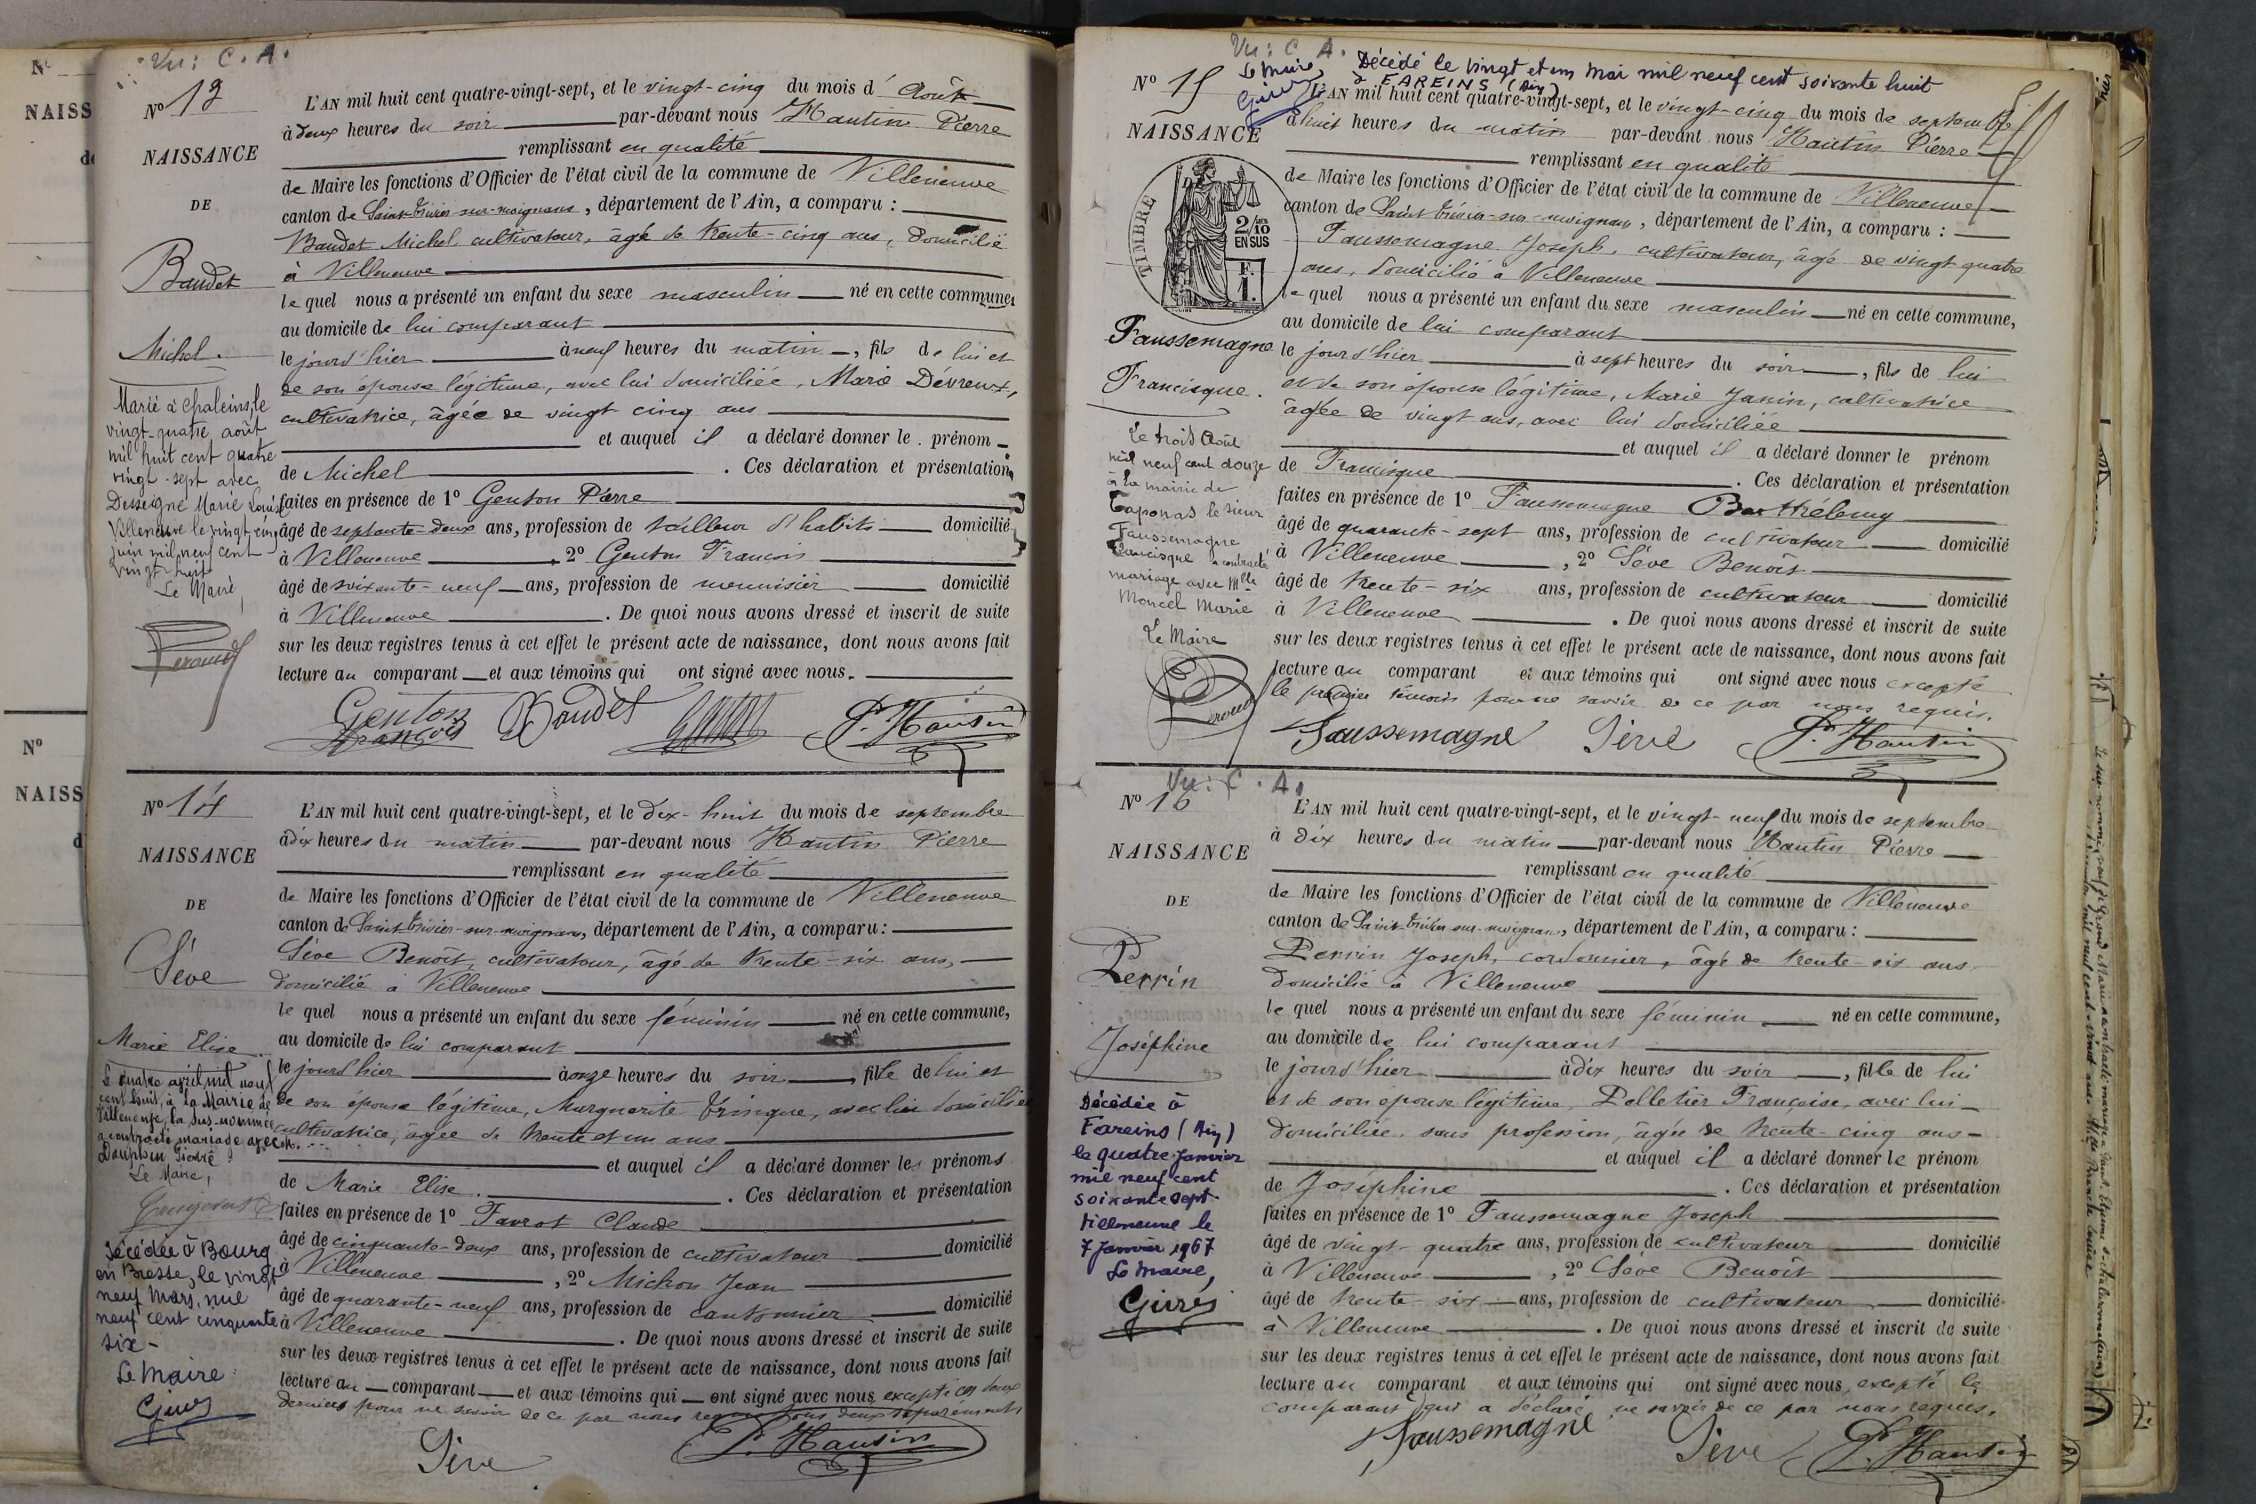 Vu : C. A.
N° 13
NAISSANCE
DE
Baudet
Michel
Marié à Chaleins, le
vingt-quatre août
mil huit cent quatre
vingt-sept avec
Desseigne Marie Louise
Villeneuve le vingt cinq
juin mil neuf cent
vingt-huit
Le Maire,
L'AN mil huit cent quatre-vingt-sept, et le vingt-cinq du mois d'Août
à deux heures du soir par-devant nous Hautin Pierre
remplissant en qualité
de Maire les fonctions d'Officier de l'état civil de la commune de Villeneuve
canton de Saint-Trivier-sur-moignans, département de l'Ain, a comparu :
Baudet Michel, cultivateur, âgé de trente-cinq ans, domicilié
à Villeneuve
lequel nous a présenté un enfant du sexe masculin né en cette commune,
au domicile de lui comparant
le jourd'hier à neuf heures du matin, fils de lui et
de son épouse légitime, avec lui domiciliée, Marie Dévreux,
cultivatrice, âgée de vingt cinq ans
et auquel il a déclaré donner le prénom
de Michel. Ces déclaration et présentation
faites en présence de 1° Genton Pierre
âgé de septante-deux ans, profession de tailleur d'habits domicilié
à Villeneuve, 2° Genton François
âgé de soixante-neuf ans, profession de menuisier domicilié
à Villeneuve. De quoi nous avons dressé et inscrit de suite
sur les deux registres tenus à cet effet le présent acte de naissance, dont nous avons fait
lecture au comparant et aux témoins qui ont signé avec nous.
Genton François Baudet P. Hautin
N° 14
NAISSANCE
DE
Séve
Marie Elise
Le quatre avril mil neuf
cent huit, à la Mairie de
Villeneuve, la sus-nommée
a contracté mariage avec M.
Dauphin Pierre
Le Maire,
Décédée à Bourg
en Bresse, le vingt
neuf Mars, mil
neuf cent cinquante
six -
Le Maire
L'AN mil huit cent quatre-vingt-sept, et le dix-huit du mois de septembre
à dix heures du matin par-devant nous Hautin Pierre
remplissant en qualité
de Maire les fonctions d'Officier de l'état civil de la commune de Villeneuve
canton de Saint-Trivier-sur-moignans, département de l'Ain, a comparu :
Séve Benoît, cultivateur, âgé de trente-six ans,
domicilié à Villeneuve
lequel nous a présenté un enfant du sexe féminin né en cette commune,
au domicile de lui comparant
le jourd'hier à onze heures du soir, fille de lui et
de son épouse légitime, Marguerite Tringue, avec lui domiciliée
cultivatrice, âgée de trente et un ans
et auquel il a déclaré donner les prénoms
de Marie Elise. Ces déclaration et présentation
faites en présence de 1° Favrot Claude
âgé de cinquante-deux ans, profession de cultivateur domicilié
à Villeneuve, 2° Michon Jean
âgé de quarante-neuf ans, profession de cantonnier domicilié
à Villeneuve. De quoi nous avons dressé et inscrit de suite
sur les deux registres tenus à cet effet le présent acte de naissance, dont nous avons fait
lecture au comparant et aux témoins qui ont signé avec nous excepté ces deux
derniers pour ne savoir de ce par nous requis tous deux séparément
Séve P. Hautin
Vu : C. A.
Le Maire
Décédé le vingt et un mai mil neuf cent soixante huit
à FAREINS (Ain)
N° 15
NAISSANCE
TIMBRE
2/10 EN SUS
F. 1.
Faussemagne
Francisque.
Le trois Août
mil neuf cent douze
à la mairie de
Taponas le sieur
Faussemagne
Francisque a contracté
mariage avec Mlle
Moncel Marie
Le Maire
L'AN mil huit cent quatre-vingt-sept, et le vingt-cinq du mois de septembre
à huit heures du matin par-devant nous Hautin Pierre
remplissant en qualité
de Maire les fonctions d'Officier de l'état civil de la commune de Villeneuve
canton de Saint-Trivier-sur-moignans, département de l'Ain, a comparu :
Faussemagne Joseph, cultivateur, âgé de vingt quatre
ans, domicilié à Villeneuve
lequel nous a présenté un enfant du sexe masculin né en cette commune,
au domicile de lui comparant
le jourd'hier à sept heures du soir, fils de lui
et de son épouse légitime, Marie Janin, cultivatrice
âgée de vingt ans, avec lui domiciliée
et auquel il a déclaré donner le prénom
de Francisque. Ces déclaration et présentation
faites en présence de 1° Faussemagne Barthélemy
âgé de quarante-sept ans, profession de cultivateur domicilié
à Villeneuve, 2° Séve Benoît
âgé de trente-six ans, profession de cultivateur domicilié
à Villeneuve. De quoi nous avons dressé et inscrit de suite
sur les deux registres tenus à cet effet le présent acte de naissance, dont nous avons fait
lecture au comparant et aux témoins qui ont signé avec nous excepté
le premier témoin pour ne savoir de ce par nous requis.
Faussemagne Séve P. Hautin
Vu : C. A.
N° 16
NAISSANCE
DE
Perrin
Joséphine
Décédée à
Fareins (Ain)
le quatre Janvier
mil neuf cent
soixante sept
Villeneuve le
7 Janvier 1967
Le Maire,
L'AN mil huit cent quatre-vingt-sept, et le vingt-neuf du mois de septembre
à dix heures du matin par-devant nous Hautin Pierre
remplissant en qualité
de Maire les fonctions d'Officier de l'état civil de la commune de Villeneuve
canton de Saint-Trivier-sur-moignans, département de l'Ain, a comparu :
Perrin Joseph, cordonnier, âgé de trente-six ans
domicilié à Villeneuve
lequel nous a présenté un enfant du sexe féminin né en cette commune,
au domicile de lui comparant
le jourd'hier à dix heures du soir, fille de lui
et de son épouse légitime, Pelletier Françoise, avec lui
domiciliée, sans profession, âgée de trente-cinq ans
et auquel il a déclaré donner le prénom
de Joséphine. Ces déclaration et présentation
faites en présence de 1° Faussemagne Joseph
âgé de vingt-quatre ans, profession de cultivateur domicilié
à Villeneuve, 2° Séve Benoît
âgé de trente six ans, profession de cultivateur domicilié
à Villeneuve. De quoi nous avons dressé et inscrit de suite
sur les deux registres tenus à cet effet le présent acte de naissance, dont nous avons fait
lecture au comparant et aux témoins qui ont signé avec nous excepté le
comparant qui a déclaré ne savoir de ce par nous requis.
Faussemagne Séve P. Hautin